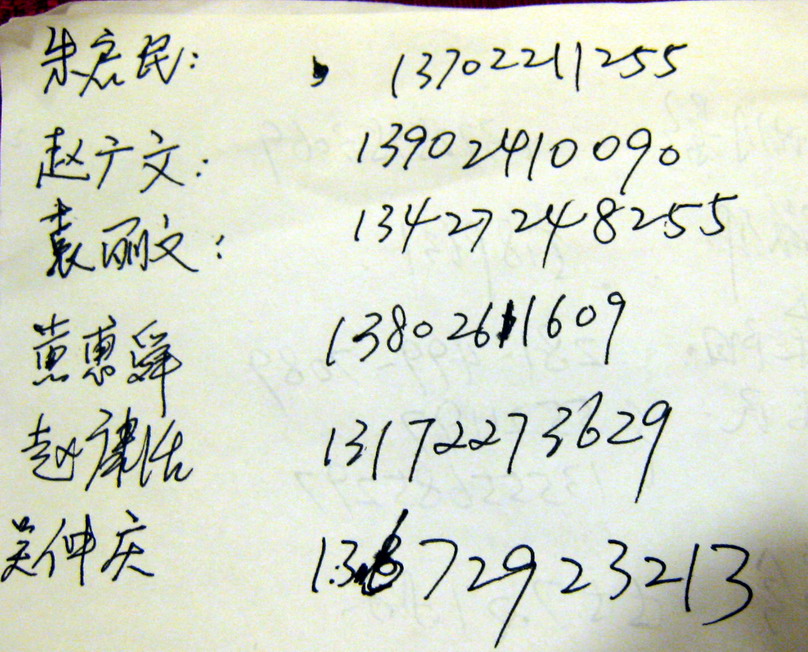 朱宏民： 13702211255
赵广文： 13902410090
袁丽文： 13427248255
黄惠舜 13802611609
赵肃 13172273629
吴仲庆 13672923213